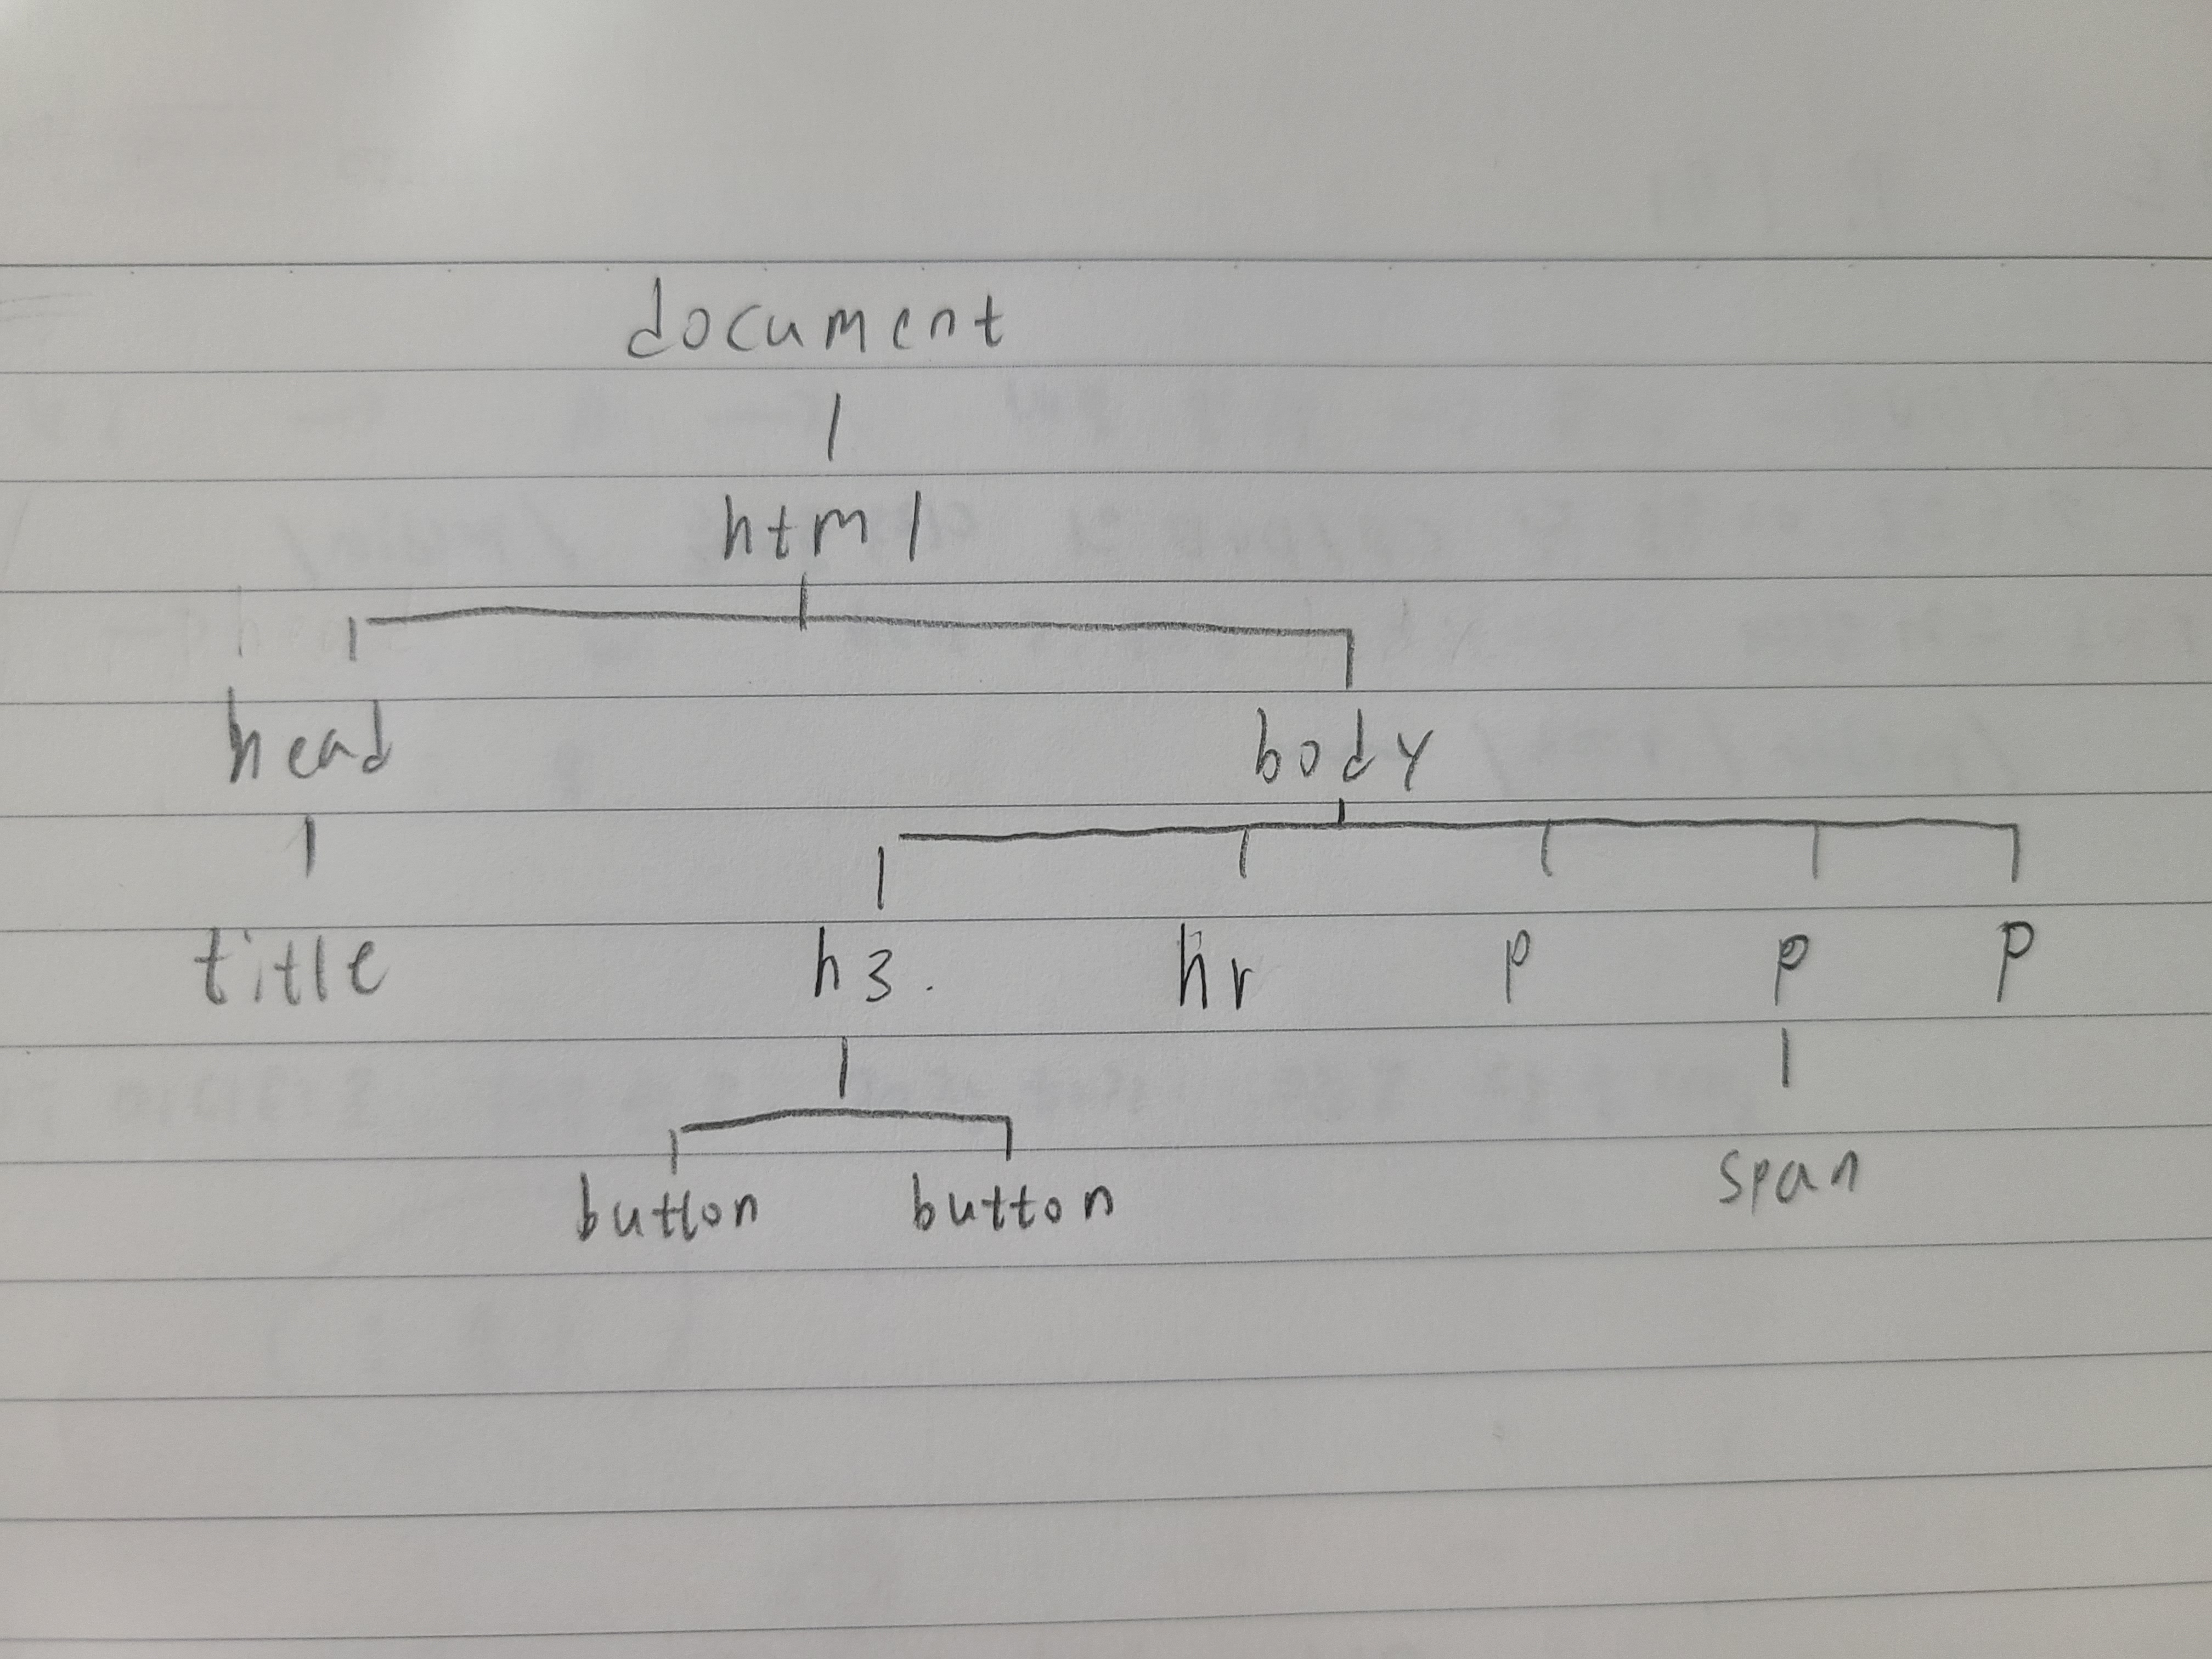 document
html
head body
title h3. hr p p p
button button span